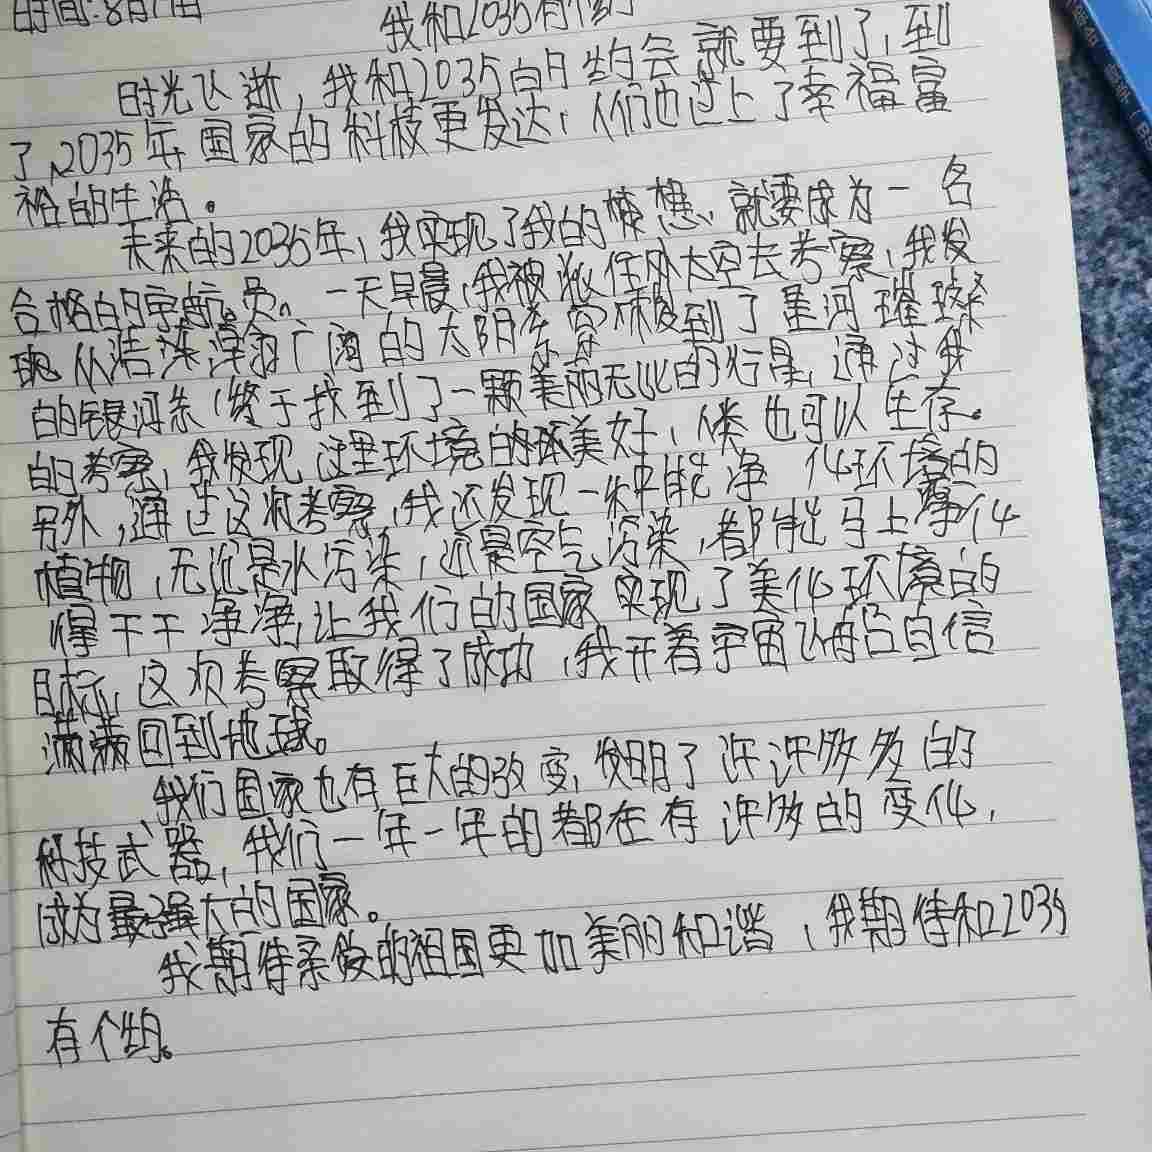 时间:8月1日
我和2035有个约
时光飞逝，我和2035的约会就要到了,到
了,2035年国家的科技更发达,人们也过上了幸福富
裕的生活。
未来的2035年,我实现了我的梦想,就要成为一名
合格的宇航员。一天早晨,我被派往外太空去考察,我发
现从浩淼广阔的太阳系穿梭到了星河璀璨
的银河系,终于找到了一颗美丽无比的行星,通过我
的考察,我发现这里环境的环美好,人类也可以生存。
另外,通过这次考察,我还发现一种能净化环境的
植物,无论是水污染,还是空气污染,都能马上净化
得干干净净,让我们的国家实现了美化环境的
目标,这次考察取得了成功,我开着宇宙飞船自信
满满回到地球。
我们国家也有巨大的改变,发明了许许多多的
科技武器,我们一年一年的都在有许多的变化,
成为最强大的国家。
我期待亲爱的祖国更加美丽和谐,我期待和2035
有个约。